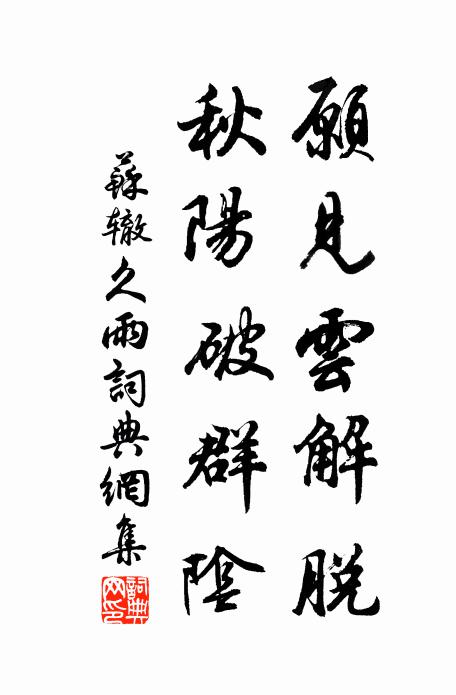 願見雲解脫
秋陽破群陰
蘇辙久雨詞典網集
詞典
网印